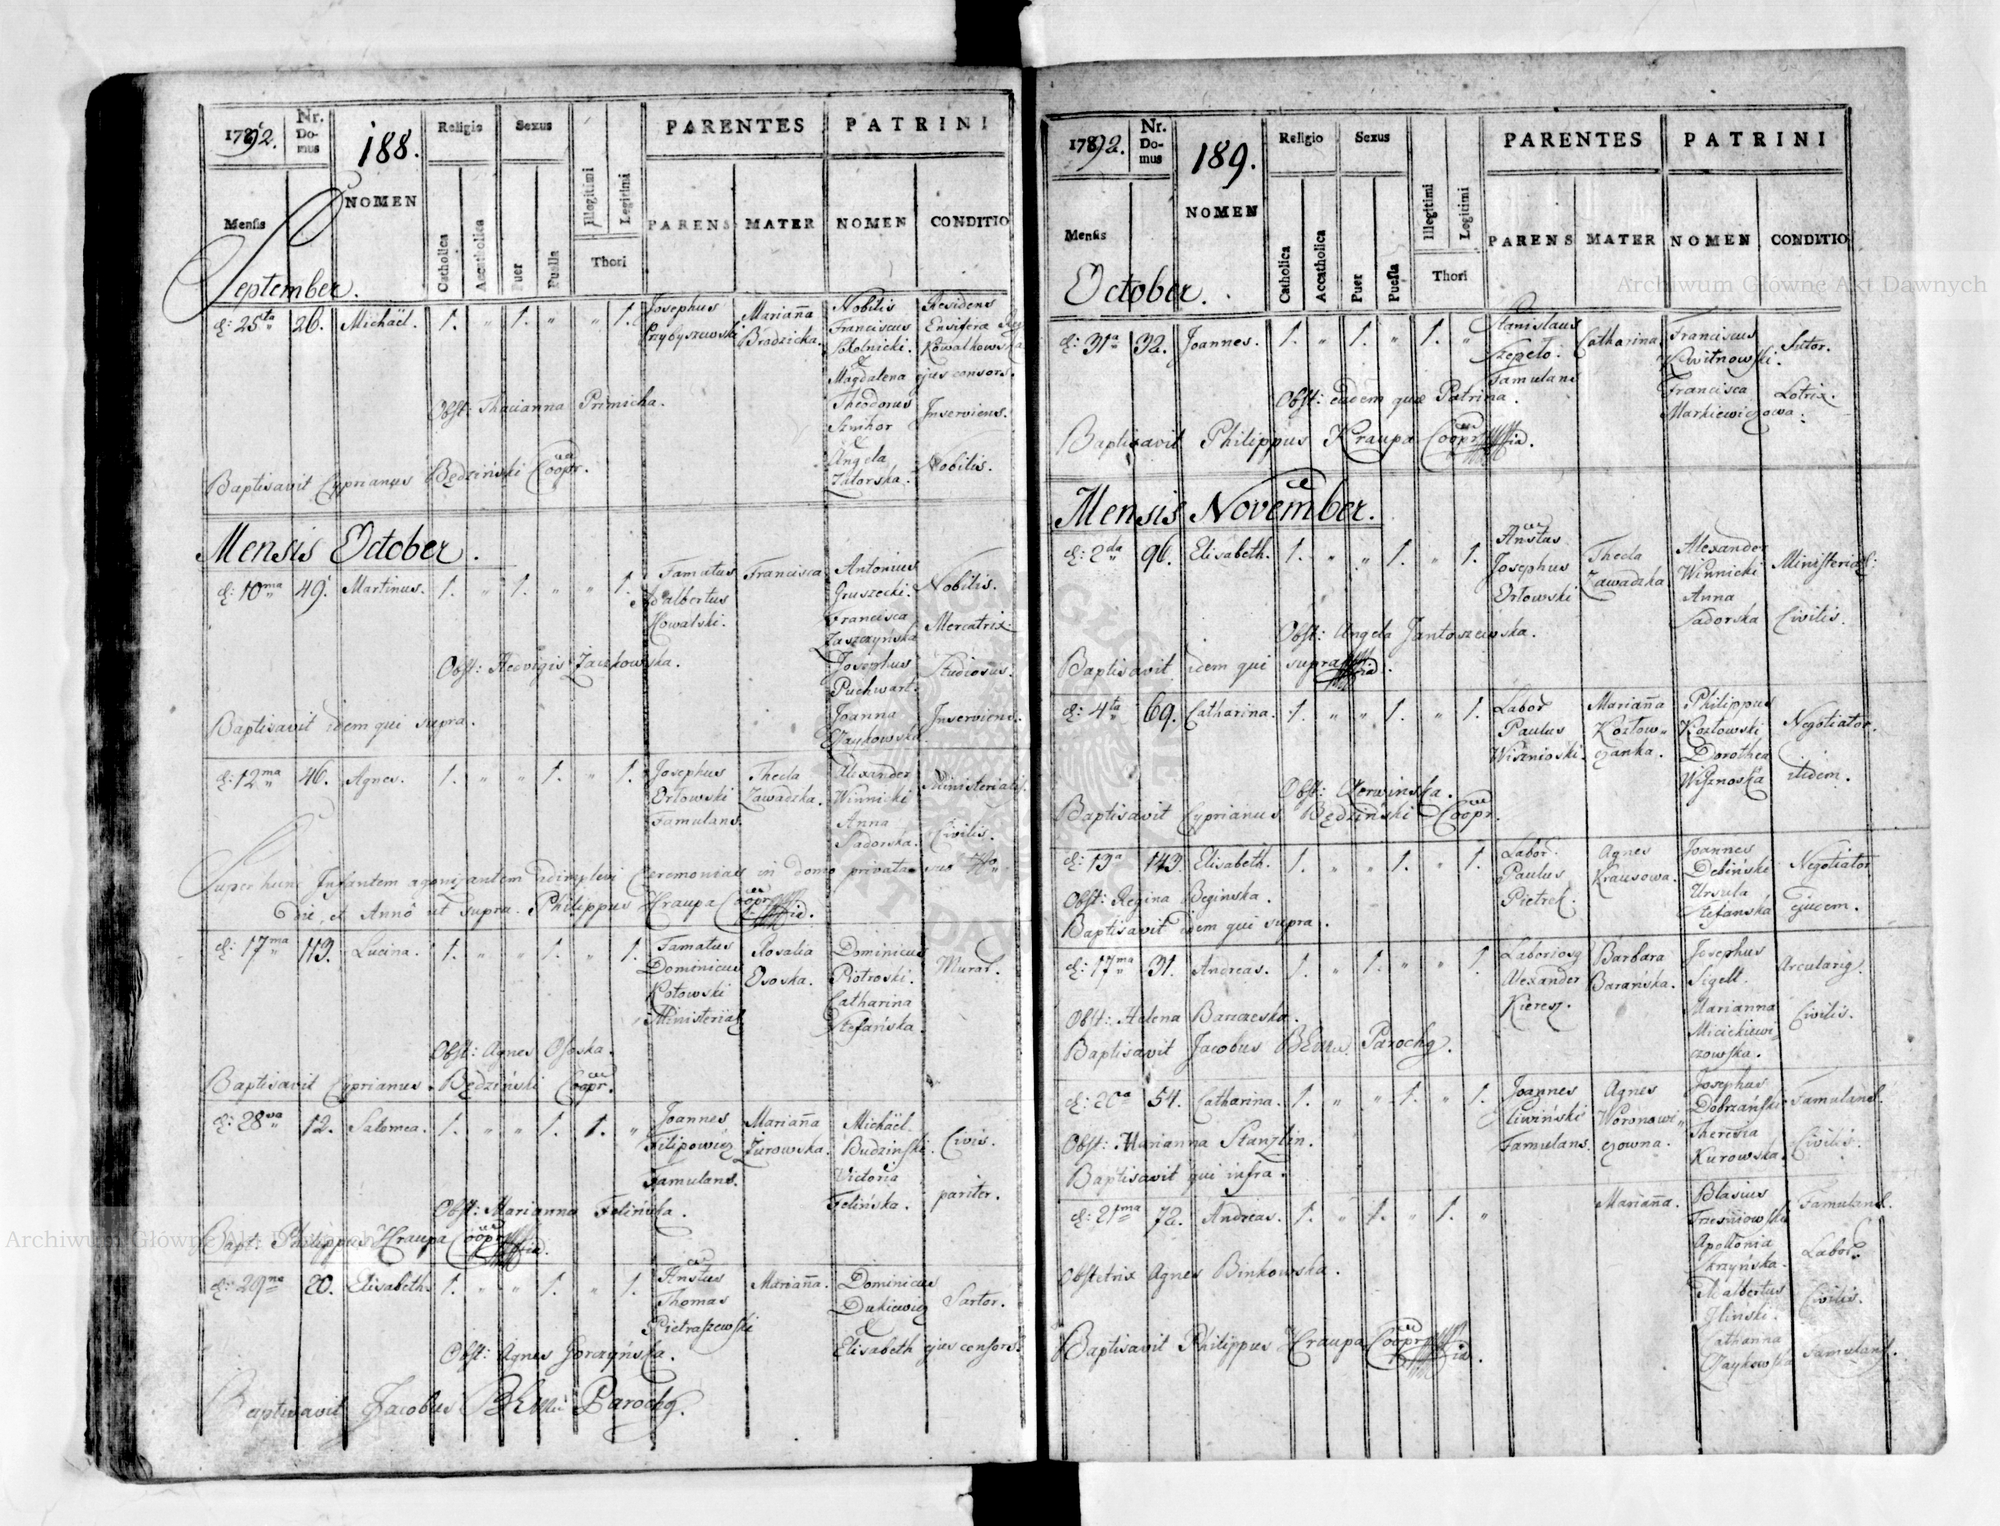 1792.
Nr. Domus
188.
NOMEN
Religio
Sexus
Illegitimi
Legitimi
PARENTES
PATRINI
Mensis
Catholica
Accatholica
Puer
Puella
Thori
PARENS
MATER
NOMEN
CONDITIO
September.
d: 25ta 26. Michaël. 1. " 1. " " 1.
Josephus
Przybyszewski
Marianna
Brodzicka.
Nobilis
Franciscus
Sokolnicki.
&
Magdalena
Theodorus
Szmhor
&
Angela
Zatorska.
Residens
Ensifera
Kowalkowska
ejus consors.
Inserviens.
Nobilis.
Obst: Thacianna Primicka.
Baptisavit Cyprianus Będziński Coopr.
Mensis October.
d: 10ma 49. Martinus. 1. " 1. " " 1.
Famatus
Adalbertus
Kowalski.
Francisca
Antonius
Gruszecki.
Francisca
Zaszczyńska
Josephus
Puchwart.
Joanna
Czaykowska.
Nobilis.
Mercatrix.
Studiosus.
Inserviens.
Obst: Hedvigis Zaczkowska.
Baptisavit idem qui supra.
d: 12ma 46. Agnes. 1. " " 1. " 1.
Josephus
Orłowski
Famulans.
Thecla
Zawadzka.
Alexander
Winnicki
Anna
Sadorska.
Ministerialis.
Civilis.
Super hunc Infantem agonizantem adimplevi Ceremonias in domo privata
die, et Anno ut supra. Philippus Kraupa Coopr.
d: 17ma 113. Lucina. 1. " " 1. " 1.
Famatus
Dominicus
Kotowski
Ministerial.
Rosalia
Ososka.
Dominicus
Piotroski.
Catharina
Stefańska.
Murar.
Obst: Agnes Ososka.
Baptisavit Cyprianus Będziński Coopr.
d: 28va 12. Salomea. 1. " " 1. 1. "
Joannes
Filipowicz
Famulans.
Marianna
Żurowska.
Michaël
Budzinski.
Victoria
Felińska.
Civis.
pariter.
Obst: Marianna Felińska.
Bapt: Philippus Kraupa Coopr.
d: 29na 20. Elisabeth. 1. " " 1. " 1.
Thomas
Pietraszewski
Marianna.
Dominicus
Dukiewicz
&
Elisabeth ejus consors.
Sartor.
Obst: Agnes Gorczyńska.
Baptisavit Jacobus Parochq.
1792.
Nr. Domus
189.
NOMEN
Religio
Sexus
Illegitimi
Legitimi
PARENTES
PATRINI
Mensis
Catholica
Accatholica
Puer
Puella
Thori
PARENS
MATER
NOMEN
CONDITIO
October.
d: 31a 32. Joannes. 1. " 1. " 1. "
Stanislaus
Szegeło.
Famulans
Catharina
Franciscus
Kwitnowski.
Francisca
Markiewiczowa.
Sutor.
Lotrix.
Obst: eadem quæ Patrina.
Baptisavit Philippus Kraupa Coopr.
Mensis November.
d: 2da 96. Elisabeth. 1. " " 1. " 1.
Josephus
Orłowski
Thecla
Zawadzka
Alexander
Winnicki
Anna
Sadorska
Ministerial:
Civilis.
Obst: Angela Jantoszewska.
Baptisavit idem qui supra.
d: 4ta 69. Catharina. 1. " " 1. " 1.
Labor
Paulus
Wisznioski.
Marianna
Kozłow"
czanka.
Philippus
Kozłowski
Dorothea
Wisznoska
Negotiator.
itidem.
Obst: Czerwińska.
Baptisavit Cyprianus Będziński Coopr.
d: 13a 143. Elisabeth. 1. " " 1. " 1.
Labor.
Paulus
Pietrek.
Agnes
Krausowa.
Joannes
Debiński
Ursula
Stefanska
Negotiator
ejusdem.
Obst: Regina Begińska.
Baptisavit idem qui supra.
d: 17ma 31. Andreas. 1. " 1. " " 1.
Laboriosq
Alexander
Kieresz.
Barbara
Barańska.
Josephus
Sigelt.
Marianna
Micickiewi
czowska.
Arcularig.
Civilis.
Obst: Helena Barczeska.
Baptisavit Jacobus Parochq.
d: 20a 54. Catharina. 1. " " 1. " 1.
Joannes
Sliwiński
Famulans.
Agnes
Woronowi"
czowna.
Josephus
Dobrzański
Theresia
Kurowska.
Famulans.
Civilis.
Obst: Marianna Stanzlin.
Baptisavit qui infra.
d: 21ma 72. Andreas. 1. " 1. " 1. "
Marianna.
Blasius
Trześniowski
Apollonia
Skrzyńska.
Adalbertus
Jliński.
Catharina
Czaykowska
Famulans.
Labor.
Civilis.
Famulans.
Obstetrix Agnes Binkowska.
Baptisavit Philippus Kraupa Coopr.
Archiwum Główne Akt Dawnych
Archiwum Główne Akt Dawnych